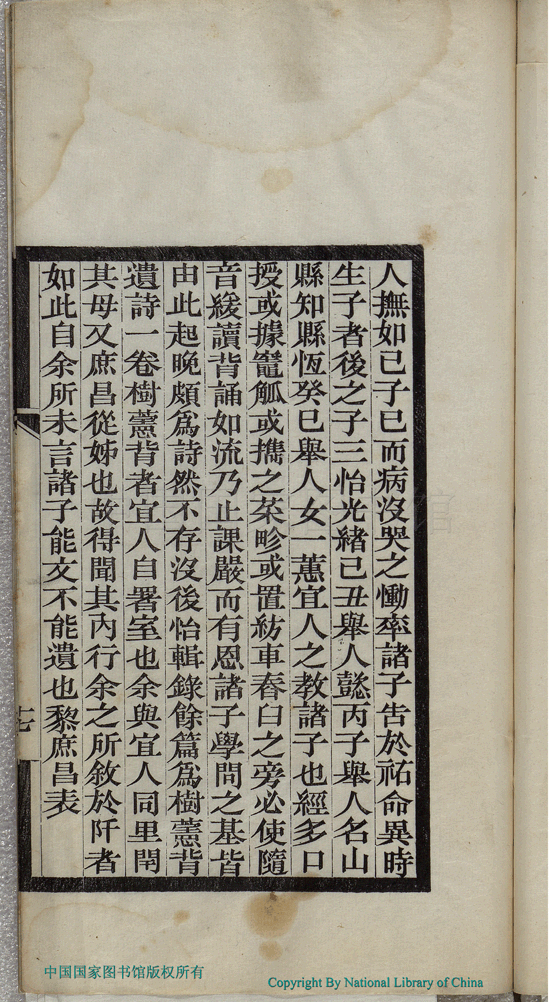 人撫如己子已而病沒哭之慟率諸子告於祏命異時
生子者後之子三怡光緒己丑舉人懿丙子舉人名山
縣知縣恆癸巳舉人女一蕙宜人之教諸子也經多口
授或據竈觚或攜之菜畛或置紡車舂臼之旁必使隨
音緩讀背誦如流乃止課嚴而有恩諸子學問之基皆
由此起晚頗爲詩然不存沒後怡輯錄餘篇爲樹蕙背
遺詩一卷樹蕙背者宜人自署室也余與宜人同里閈
其母又庶昌從姊也故得聞其內行余之所敘於阡者
如此自余所未言諸子能文不能遺也黎庶昌表
十七
中国国家图书馆版权所有
Copyright By National Library of China